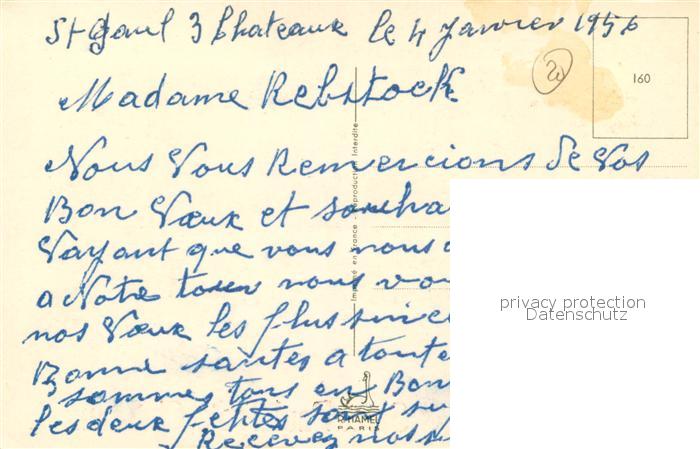 St Paul 3 Chateaux le 4 Janvier 1956
160
Madame Rebstock
Nous Vous Remercions de Vos
Bon Vœux et souha
Vayant que vous nous
a Notre tour nous vou
nos Vœux les plus since
Bonne santes a toute
sommes tous en Bon
les deux petites sont su
Recevez nos
Imprimé en France - Reproduction Interdite
R. HAMEL
PARIS
privacy protection
Datenschutz